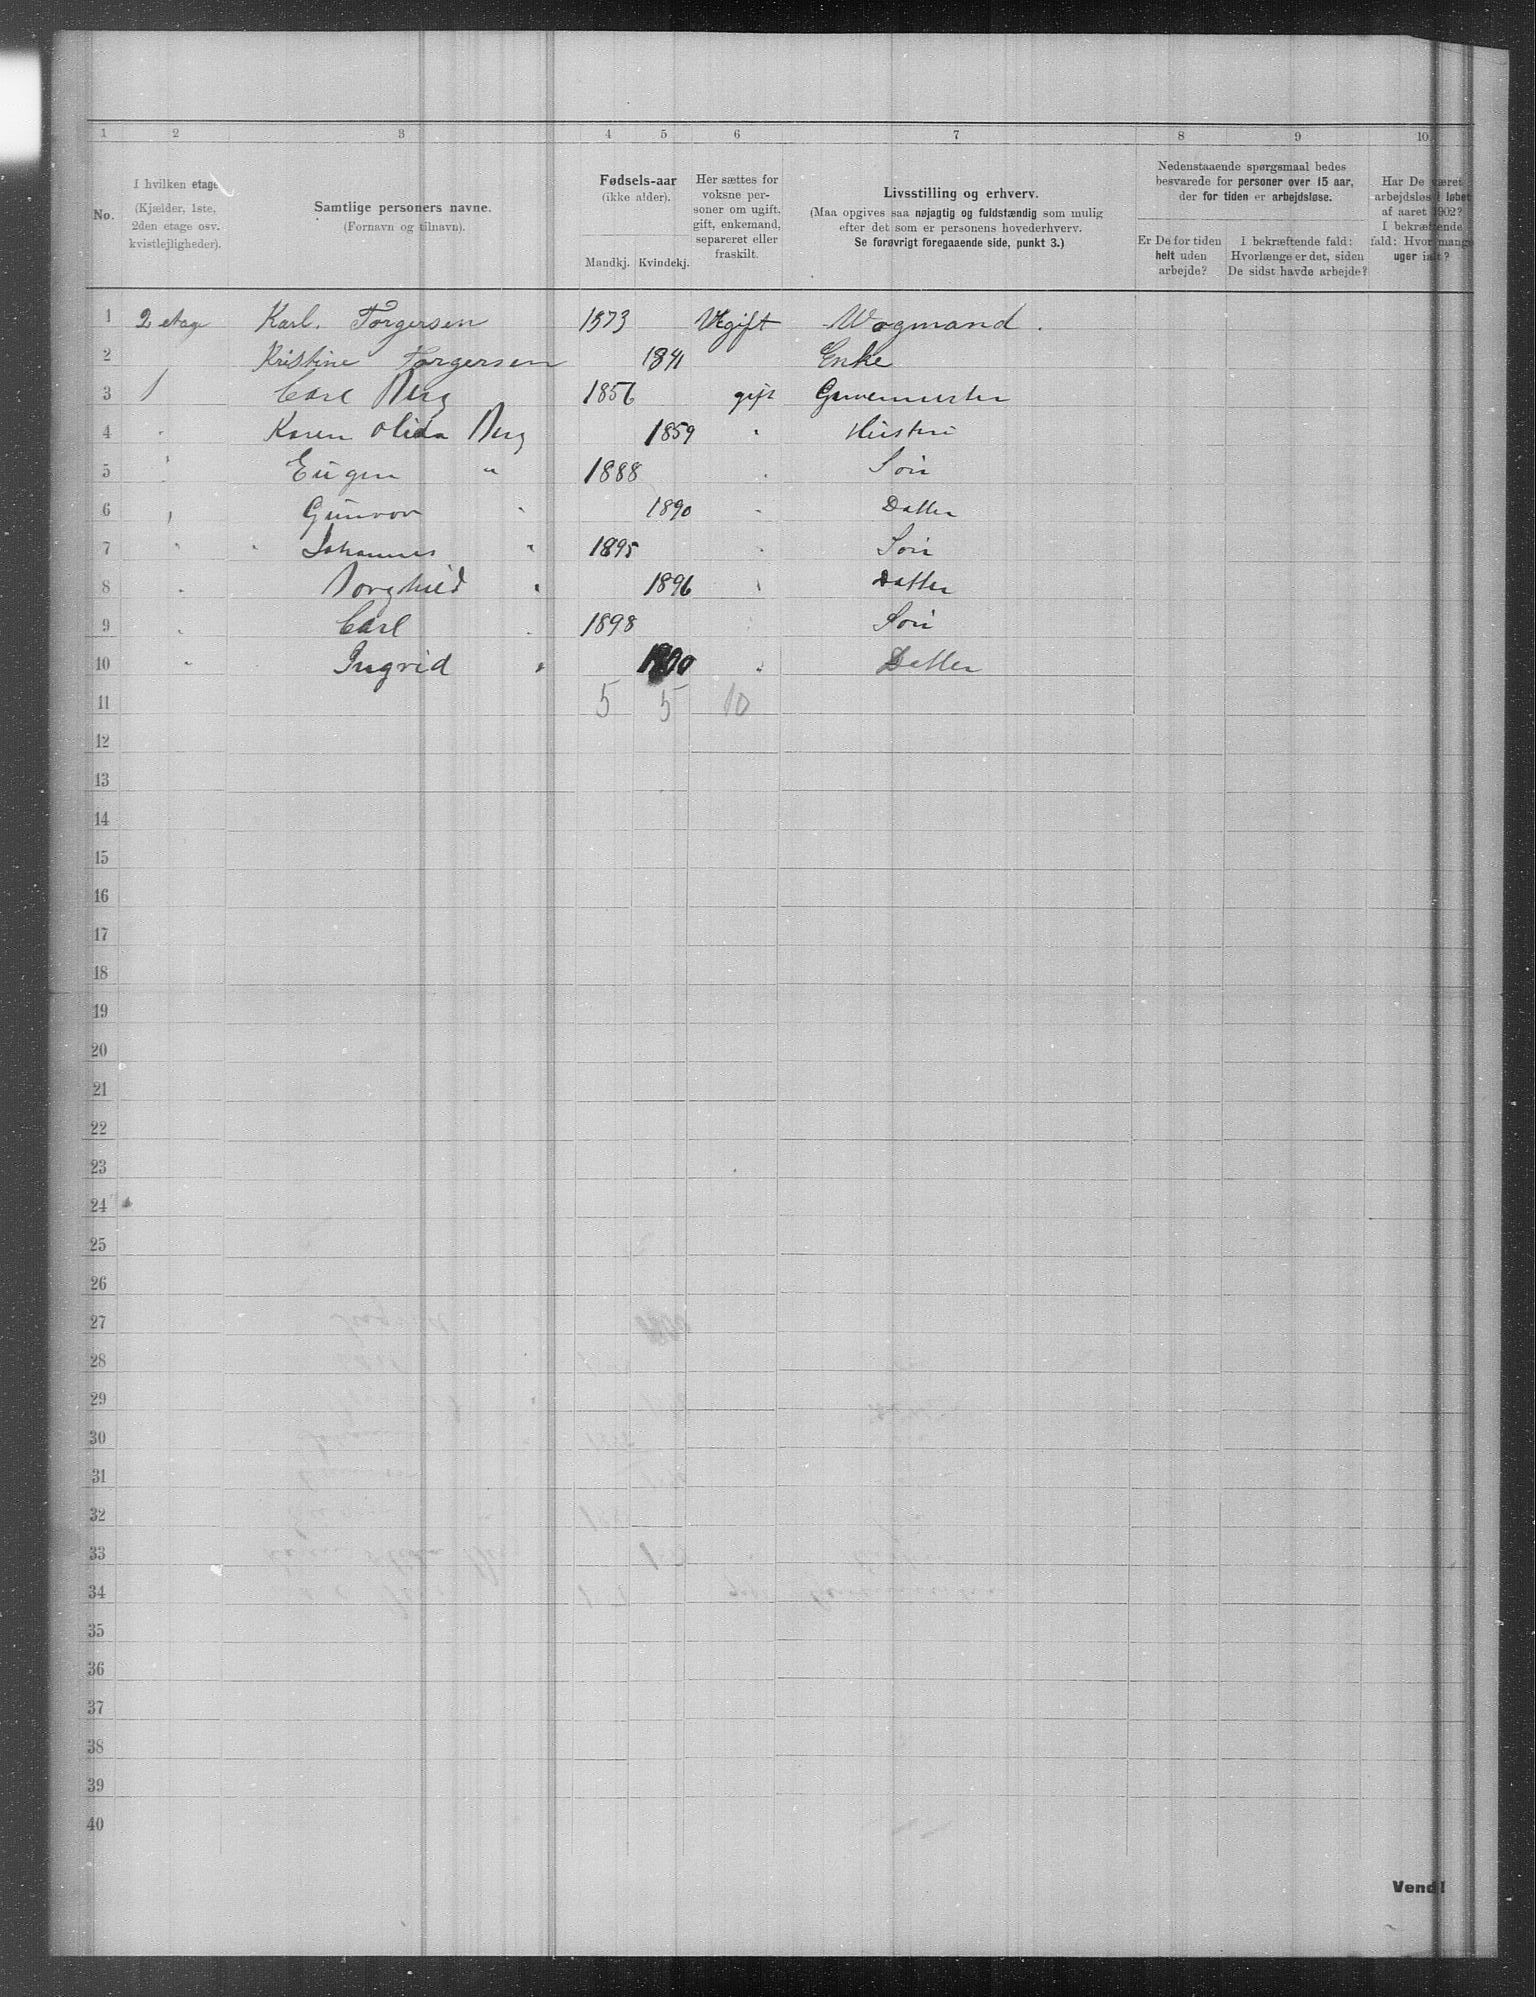 1 2 3 4 5 6 7 8 9 10
No.
I hvilken etage (Kjælder, 1ste, 2den etage osv. kvistlejligheder).
Samtlige personers navne. (Fornavn og tilnavn).
Fødsels-aar (ikke alder). Mandkj. Kvindekj.
Her sættes for voksne personer om ugift, gift, enkemand, separeret eller fraskilt.
Livsstilling og erhverv. (Maa opgives saa nøjagtig og fuldstændig som mulig efter det som er personens hovederhverv. Se forøvrigt foregaaende side, punkt 3.)
Nedenstaaende spørgsmaal bedes besvarede for personer over 15 aar, der for tiden er arbejdsløse.
Er De for tiden helt uden arbejde?
I bekræftende fald: Hvorlænge er det, siden De sidst havde arbejde?
Har De været arbejdsløs i løbet af aaret 1902? I bekræftende fald: Hvor mange uger ialt?
1 2 etage Karl. Torgersen 1873 Ugift Vogmand.
2 Kristine Torgersen 1841 Enke
3 Carl Berg 1856 gift Garvermester
4 " Karen Olida Berg 1859 " Hustru
5 " Eugen " 1888 " Søn
6 " Gunvor " 1890 " Datter
7 " " Johannes " 1895 " Søn
8 " Borghild " 1896 " Datter
9 " Carl " 1898 " Søn
10 " Ingrid " 1900 " Datter
11 5 5 10
12
13
14
15
16
17
18
19
20
21
22
23
24
25
26
27
28
29
30
31
32
33
34
35
36
37
38
39
40
Vend!